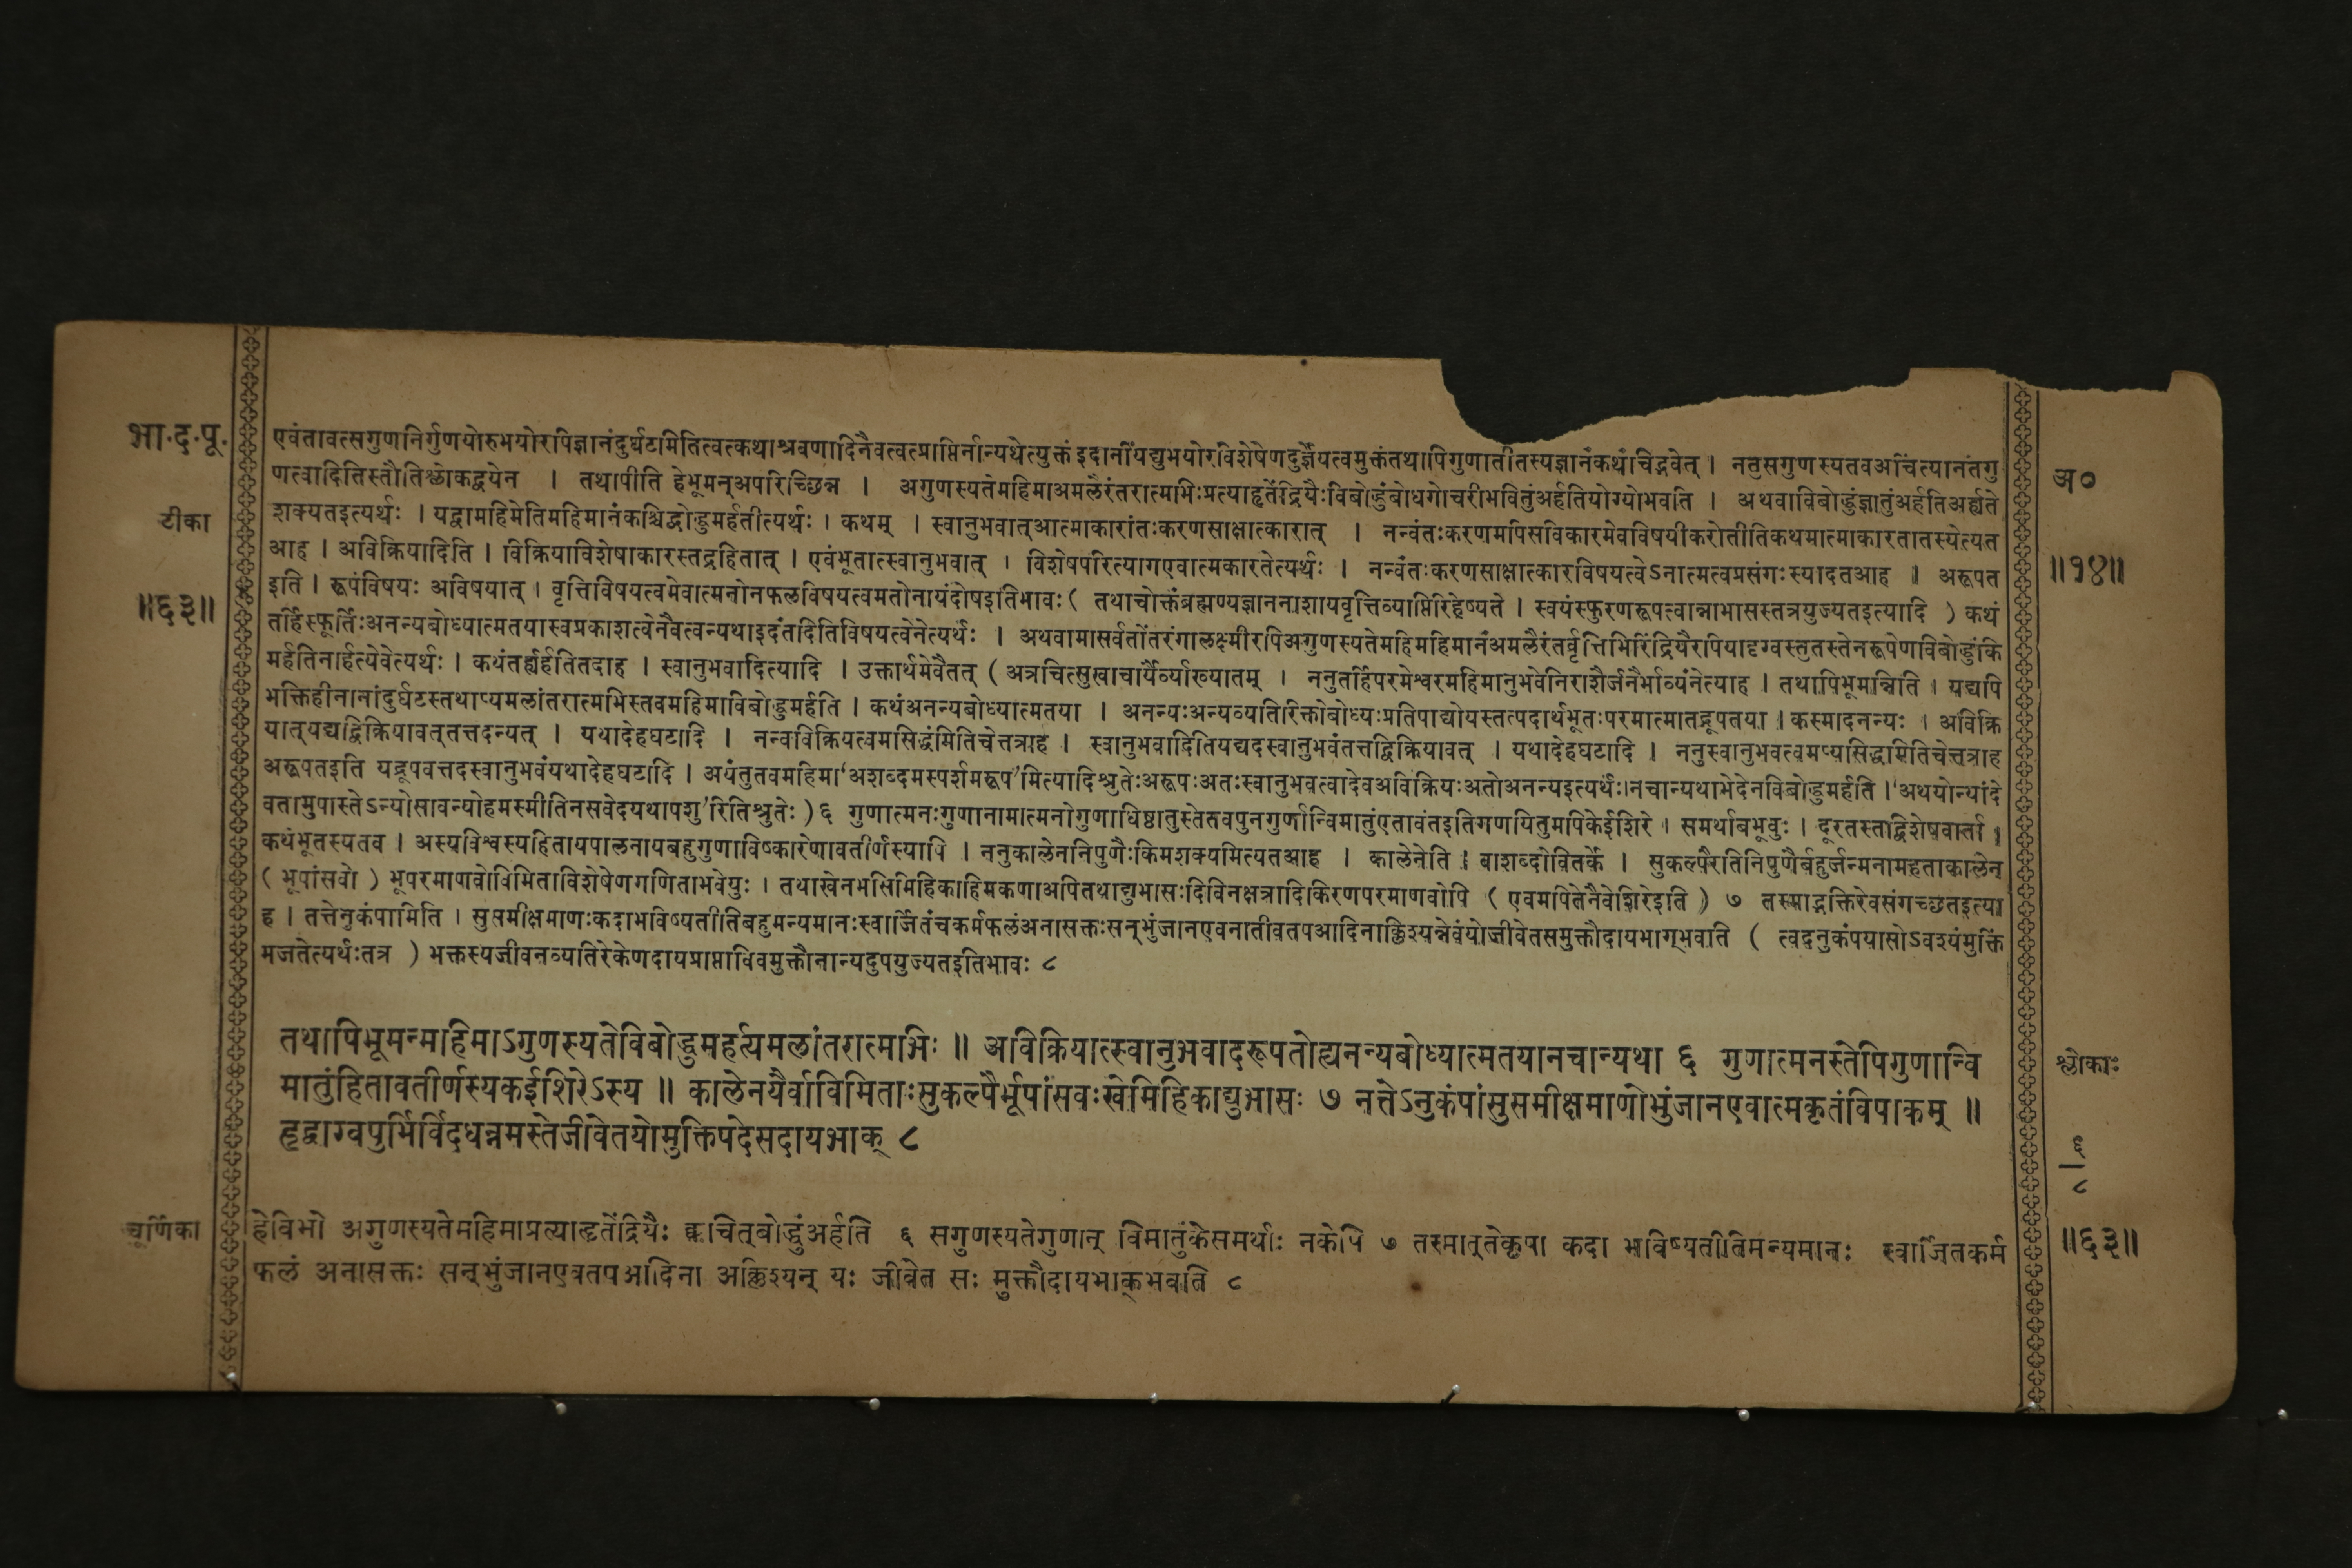 भा.द.पू.
टीका
॥६३॥
एवंतावत्सगुणनिर्गुणयोरुभयोरपिज्ञानंदुर्घटमितित्वत्कथाश्रवणादिनैवत्वत्प्राप्तिर्नान्यथेत्युक्तं इदानींयद्युभयोरविशेषेणदुर्ज्ञेयत्वमुक्तंतथापिगुणातीतस्यज्ञानंकथंचिद्भवेत् । नतुसगुणस्यतवअचिंत्यानंतगु
णत्वादितिस्तौतिश्लोकद्वयेन । तथापीति हेभूमन्अपरिच्छिन्न । अगुणस्यतेमहिमाअमलैरंतरात्मभिःप्रत्याहृतेंद्रियैःविबोद्धुंबोधगोचरीभवितुंअर्हतियोग्योभवति । अथवाविबोद्धुंज्ञातुंअर्हतिअर्ह्यते
शक्यतइत्यर्थः । यद्वामहिमेतिमहिमानंकश्चिद्बोद्धुमर्हतीत्यर्थः । कथम् । स्वानुभवात्आत्माकारांतःकरणसाक्षात्कारात् । नन्वंतःकरणमपिसविकारमेवविषयीकरोतीतिकथमात्माकारतातस्येत्यत
आह । अविक्रियादिति । विक्रियाविशेषाकारस्तद्रहितात् । एवंभूतात्स्वानुभवात् । विशेषपरित्यागएवात्मकारतेत्यर्थः । नन्वंतःकरणसाक्षात्कारविषयत्वेऽनात्मत्वप्रसंगःस्यादतआह । अरूपत
इति । रूपंविषयः अविषयात् । वृत्तिविषयत्वमेवात्मनोनफलविषयत्वमतोनायंदोषइतिभावः ( तथाचोक्तंब्रह्मण्यज्ञाननाशायवृत्तिव्याप्तिरिहेष्यते । स्वयंस्फुरणरूपत्वान्नाभासस्तत्रयुज्यतइत्यादि ) कथं
तर्हिस्फूर्तिःअनन्यबोध्यात्मतयास्वप्रकाशत्वेनैवत्वन्यथाइदंतदितिविषयत्वेनेत्यर्थः । अथवामासर्वतोंतरंगालक्ष्मीरपिअगुणस्यतेमहिमहिमानंअमलैरंतर्वृत्तिभिरिंद्रियैरपियादृग्वस्तुतस्तेनरूपेणविबोद्धुंकि
मर्हतिनार्हत्येवेत्यर्थः । कथंतर्ह्यर्हतितदाह । स्वानुभवादित्यादि । उक्तार्थमेवैतत् ( अत्रचित्सुखाचार्यैर्व्याख्यातम् । ननुतर्हिपरमेश्वरमहिमानुभवेनिराशैर्जनैर्भाव्यंनेत्याह । तथापिभूमन्निति । यद्यपि
भक्तिहीनानांदुर्घटस्तथाप्यमलांतरात्मभिस्तवमहिमाविबोद्धुमर्हति । कथंअनन्यबोध्यात्मतया । अनन्यःअन्यव्यतिरिक्तोबोध्यःप्रतिपाद्योयस्तत्पदार्थभूतःपरमात्मातद्रूपतया । कस्मादनन्यः । अविक्रि
यात्यद्यद्विक्रियावत्तत्तदन्यत् । यथादेहघटादि । नन्वविक्रियत्वमसिद्धंमितिचेत्तत्राह । स्वानुभवादितियद्यदस्वानुभवंतत्तद्विक्रियावत् । यथादेहघटादि । ननुस्वानुभवत्वमप्यसिद्धमितिचेत्तत्राह
अरूपतइति यद्रूपवत्तदस्वानुभवंयथादेहघटादि । अयंतुतवमहिमा‘अशब्दमस्पर्शमरूप’मित्यादिश्रुतेःअरूपःअतःस्वानुभवत्वादेवअविक्रियःअतोअनन्यइत्यर्थः।नचान्यथाभेदेनविबोद्धुमर्हति ।‘अथयोन्यांदे
वतामुपास्तेऽन्योसावन्योहमस्मीतिनसवेदयथापशु’रितिश्रुतेः ) ६ गुणात्मनःगुणानामात्मनोगुणाधिष्ठातुस्तेतवपुनगुर्णान्विमातुंएतावंतइतिगणयितुमपिकेईशिरे । समर्थाबभूवुः । दूरतस्तद्विशेषवार्ता ।
कथंभूतस्यतव । अस्यविश्वस्यहितायपालनायबहुगुणाविष्कारेणावतीर्णस्यापि । ननुकालेननिपुणैःकिमशक्यमित्यतआह । कालेनेति । वाशब्दोवितर्के । सुकल्पैरतिनिपुणैर्बहुर्जन्मनामहताकालेन
( भूपांसवो ) भूपरमाणवोविमिताविशेषेणगणिताभवेयुः । तथाखेनभसिमिहिकाहिमकणाअपितथाद्युभासःदिविनक्षत्रादिकिरणपरमाणवोपि ( एवमपितेनैवेशिरेइति ) ७ तस्माद्भक्तिरेवसंगच्छतइत्या
ह । तत्तेनुकंपामिति । सुसमीक्षमाणःकदाभविष्यतीतिबहुमन्यमानःस्वार्जितंचकर्मफलंअनासक्तःसन्भुंजानएवनातीवतपआदिनाक्लिश्यन्नेवंयोजीवेतसमुक्तौदायभाग्भवति ( त्वदनुकंपयासोऽवश्यंमुक्तिं
भजतेत्यर्थःतत्र ) भक्तस्यजीवनव्यतिरेकेणदायप्राप्ताविवमुक्तौनान्यदुपयुज्यतइतिभावः ८
अ०
॥१४॥
तथापिभूमन्महिमाऽगुणस्यतेविबोद्धुमर्हत्यमलांतरात्मभिः ॥ अविक्रियात्स्वानुभवादरूपतोह्यनन्यबोध्यात्मतयानचान्यथा ६ गुणात्मनस्तेपिगुणान्वि
मातुंहितावतीर्णस्यकईशिरेऽस्य ॥ कालेनयैर्वाविमिताःसुकल्पैर्भूपांसवःखेमिहिकाद्युभासः ७ नत्तेऽनुकंपांसुसमीक्षमाणोभुंजानएवात्मकृतंविपाकम् ॥
हृद्वाग्वपुर्भिर्विदधन्नमस्तेजीवेतयोमुक्तिपदेसदायभाक् ८
श्लोकाः
६
८
चूर्णिका
हेविभो अगुणस्यतेमहिमाप्रत्याहृतेंद्रियैः क्वचित्बोद्धुंअर्हति ६ सगुणस्यतेगुणान् विमातुंकेसमर्थाः नकेपि ७ तस्मात्तेकृपा कदा भविष्यतीतिमन्यमानः स्वार्जितकर्म
फलं अनासक्तः सन्भुंजानएवतपआदिना अक्लिश्यन् यः जीवेत सः मुक्तौदायभाक्भवति ८
॥६३॥